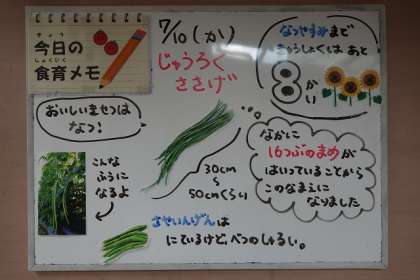 きょう
今日の
しょくいく
食育メモ
7/10(か)
じゅうろく
ささげ
なつやすみまで
きゅうしょくは あと
8
かい
おいしいきせつは
なつ!
こんな
ふうに
なるよ
30cm
〜
50cmくらい
なかに
16つぶのまめが
はいっていることから
このなまえに
なりました
さやいんげんは
にているけど、べつのしゅるい。